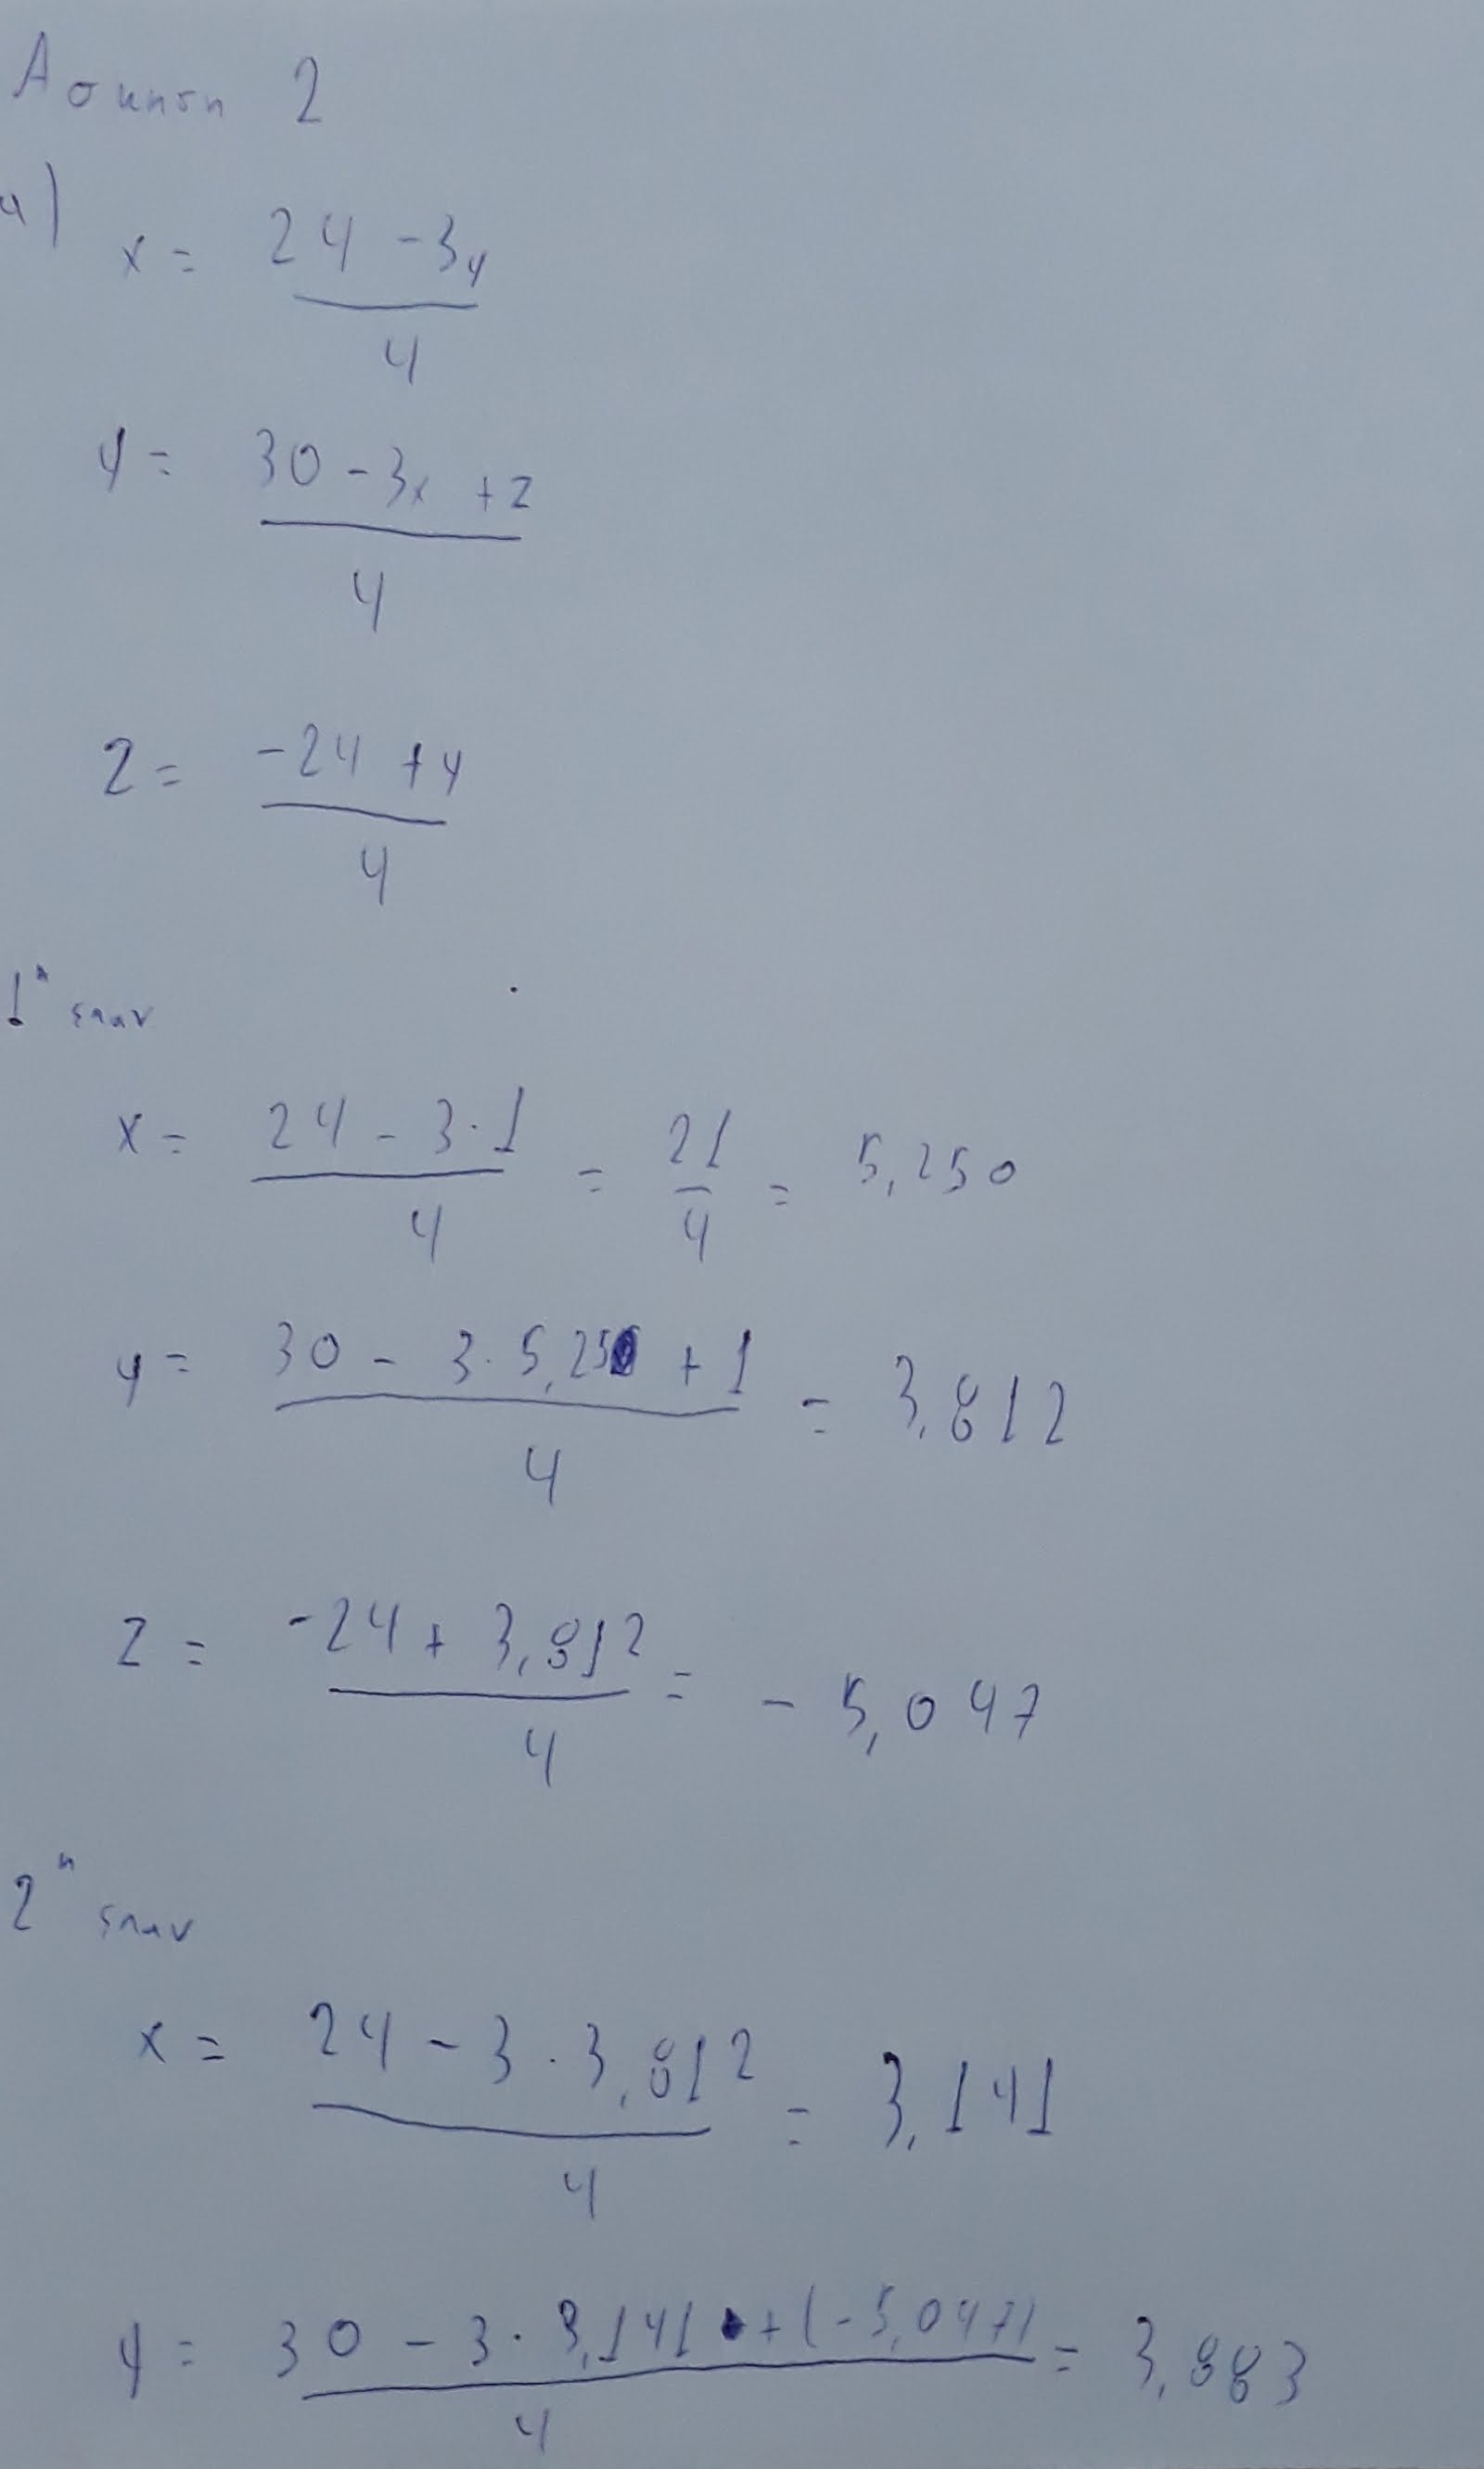 Άσκηση 2
α) x = (24 - 3y) / 4
y = (30 - 3x + z) / 4
z = (-24 + y) / 4
1η επαν
x = (24 - 3·1) / 4 = 21/4 = 5,250
y = (30 - 3·5,250 + 1) / 4 = 3,812
z = (-24 + 3,812) / 4 = -5,047
2η επαν
x = (24 - 3·3,812) / 4 = 3,141
y = (30 - 3·3,141 + (-5,047)) / 4 = 3,883